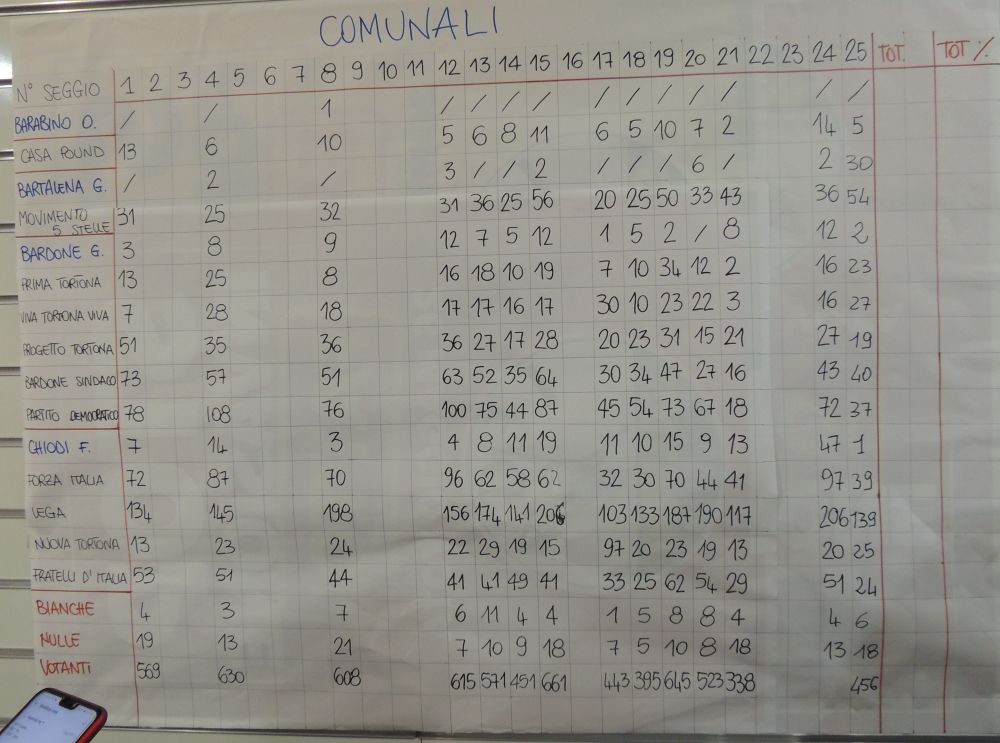 COMUNALI
N° SEGGIO 1 2 3 4 5 6 7 8 9 10 11 12 13 14 15 16 17 18 19 20 21 22 23 24 25 TOT. TOT %
BARABINO O. / / 1 / / / / / / / / / / /
CASA POUND 13 6 10 5 6 8 11 6 5 10 7 2 14 5
BARTALENA G. / 2 / 3 / / 2 / / / 6 / 2 30
MOVIMENTO 5 STELLE 31 25 32 31 36 25 56 20 25 50 33 43 36 54
BARDONE G. 3 8 9 12 7 5 12 1 5 2 / 8 12 2
PRIMA TORTONA 13 25 8 16 18 10 19 7 10 34 12 2 16 23
VIVA TORTONA VIVA 7 28 18 17 17 16 17 30 10 23 22 3 16 27
PROGETTO TORTONA 51 35 36 36 27 17 28 20 23 31 15 21 27 19
BARDONE SINDACO 73 57 51 63 52 35 64 30 34 47 27 16 43 40
PARTITO DEMOCRATICO 78 108 76 100 75 44 87 45 54 73 67 18 72 37
CHIODI F. 7 14 3 4 8 11 19 11 10 15 9 13 47 1
FORZA ITALIA 72 87 70 96 62 58 62 32 30 70 44 41 97 39
LEGA 134 145 198 156 174 141 206 103 133 187 190 117 206 139
NUOVA TORTONA 13 23 24 22 29 19 15 97 20 23 19 13 20 25
FRATELLI D'ITALIA 53 51 44 41 41 49 41 33 25 62 54 29 51 24
BIANCHE 4 3 7 6 11 4 4 1 5 8 8 4 4 6
NULLE 19 13 21 7 10 9 18 7 5 10 8 18 13 18
VOTANTI 569 630 608 615 571 451 661 443 395 645 523 338 456